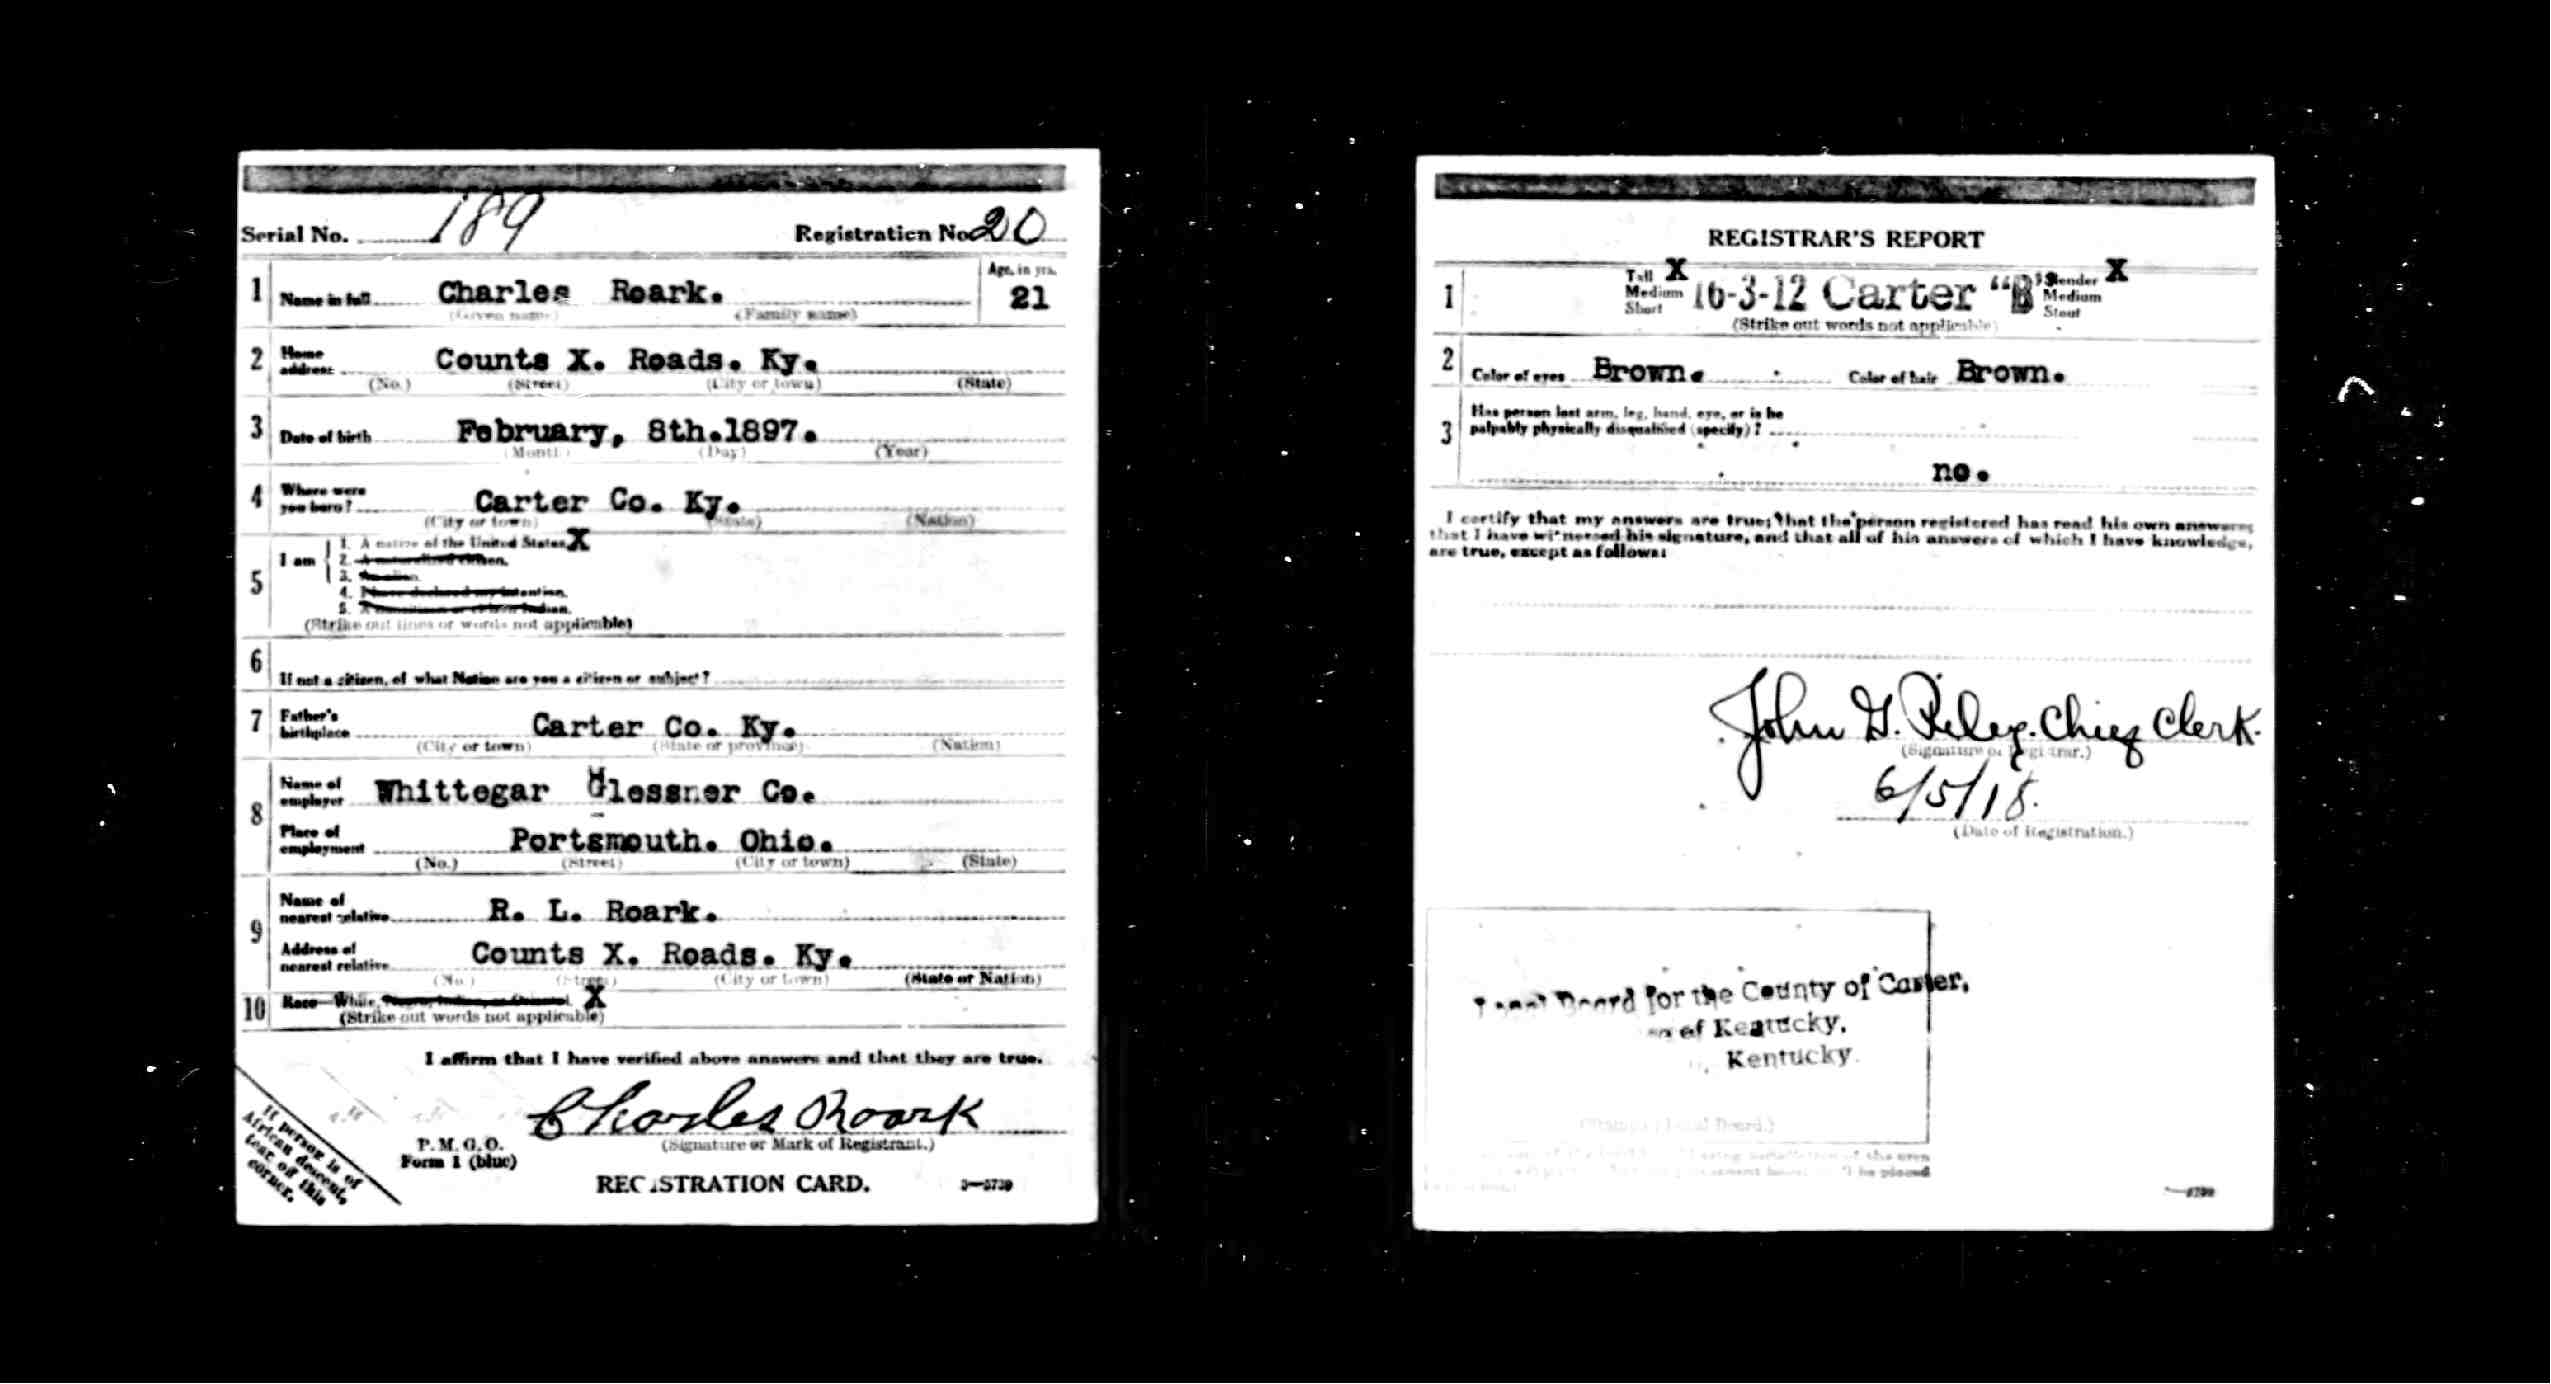 Serial No. 189 Registration No. 20
1 Name in full Charles Roark. Age, in yrs. 21
(Given name) (Family name)
2 Home address Counts X. Roads. Ky.
(No.) (Street) (City or town) (State)
3 Date of birth February, 8th.1897.
(Month) (Day) (Year)
4 Where were you born? Carter Co. Ky.
(City or town) (State) (Nation)
5 I am
1. A native of the United States X
2. A naturalized citizen.
3. An alien.
4. I have declared my intention.
5. A noncitizen or citizen Indian.
(Strike out lines or words not applicable)
6 If not a citizen, of what Nation are you a citizen or subject?
7 Father's birthplace Carter Co. Ky.
(City or town) (State or province) (Nation)
8 Name of employer Whittegar Glessner Co.
Place of employment Portsmouth. Ohio.
(No.) (Street) (City or town) (State)
9 Name of nearest relative R. L. Roark.
Address of nearest relative Counts X. Roads. Ky.
(No.) (Street) (City or town) (State or Nation)
10 Race—White, Negro, Indian, or Oriental. X
(Strike out words not applicable)
I affirm that I have verified above answers and that they are true.
Charles Roark
(Signature or Mark of Registrant.)
P. M. G. O.
Form 1 (blue)
REGISTRATION CARD. 3—5739
If person is of
African descent,
tear off this
corner.
REGISTRAR'S REPORT
1 Tall X Slender X
Medium 16-3-12 Carter "B" Medium
Short Stout
(Strike out words not applicable)
2 Color of eyes Brown. Color of hair Brown.
3 Has person lost arm, leg, hand, eye, or is he
palpably physically disqualified (specify)?
no.
I certify that my answers are true; that the person registered has read his own answers;
that I have witnessed his signature, and that all of his answers of which I have knowledge,
are true, except as follows:
John G. Riley. Chief Clerk.
(Signature of Registrar.)
6/5/18.
(Date of Registration.)
Local Board for the County of Carter,
of Kentucky,
Kentucky.
(Stamp of Local Board.)